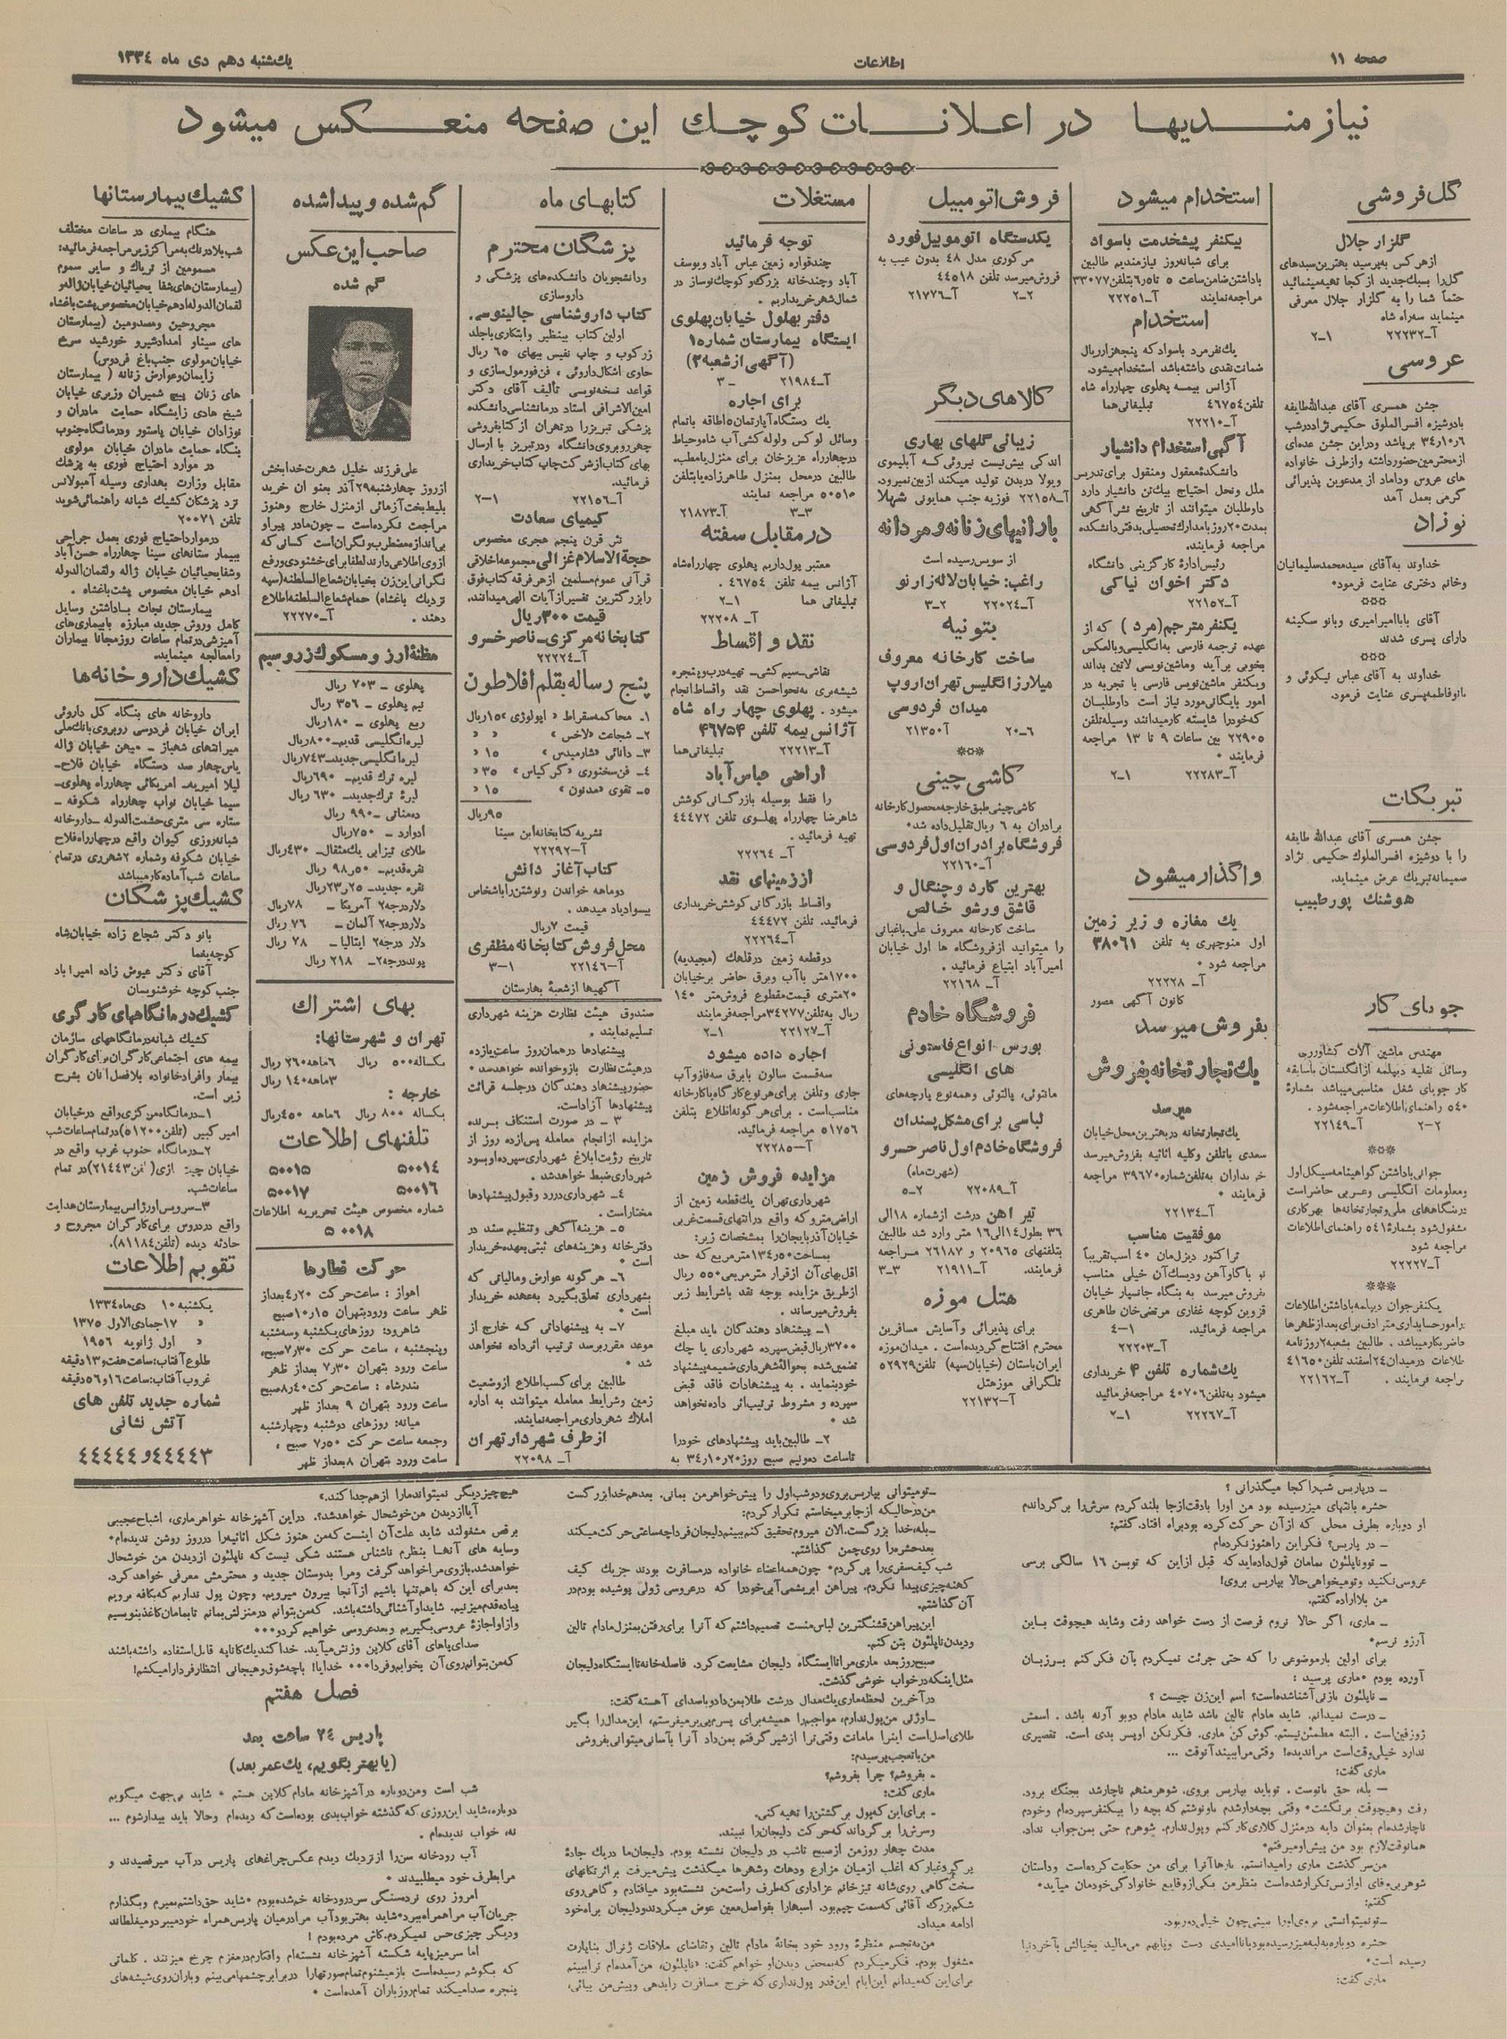 صفحه ۱۱
اطلاعات
یکشنبه دهم دی ماه ۱۳۳۴
نیازمندیها در اعلانات کوچک این صفحه منعکس میشود
گل فروشی
گلزار جلال
از هر کس به پرسید بهترین سبدهای
گل را بسبک جدید از کجا تهیه مینمائید
حتماً شما را به گلزار جلال معرفی
مینماید سه راه شاه
آ-۲۲۲۳۲ ۱-۲
عروسی
جشن همسری آقای عبدالله طایفه
با دوشیزه افسرالملوک حکیمی نژاد در شب
۳۴ر۱۰ر۶ برپا شد و در این جشن عده‌ای
از محترمین حضور داشته و از طرف خانواده
های عروس و داماد از مدعوین پذیرائی
گرمی بعمل آمد
نوزاد
خداوند به آقای سید محمد سلیمانیان
و خانم دختری عنایت فرمود*
***
آقای بابا امیر امیری و بانو سکینه
دارای پسری شدند
***
خداوند به آقای عباس نیکوئی و
بانو فاطمه پسری عنایت فرمود.
تبریکات
جشن همسری آقای عبدالله طایفه
را با دوشیزه افسرالملوک حکیمی نژاد
صمیمانه تبریک عرض مینماید.
هوشنگ پور طبیب
جویای کار
مهندس ماشین آلات کشاورزی
وسائل نقلیه دیپلمه از انگلستان با سابقه
کار جویای شغل مناسبی میباشد شمارهٔ
۵۴۰ راهنمای اطلاعات مراجعه شود.
۲-۲ آ-۲۲۱۴۹
***
جوانی با داشتن گواهینامه سیکل اول
و معلومات انگلیسی و عربی حاضر است
در بنگاههای ملی و تجارتخانه‌ها بهر کاری
مشغول شود بشمارهٔ ۵۴۱ راهنمای اطلاعات
مراجعه شود
آ-۲۲۲۲۷
***
یکنفر جوان دیپلمه با داشتن اطلاعات
در میدان ۲۴ اسفند تلفن ۴۱۶۵۰
مراجعه فرمایند. آ-۲۲۱۶۲
استخدام میشود
بیکنفر پیشخدمت باسواد
برای شبانه‌روز نیازمندیم طالبین
با داشتن ضامن ساعت ۵ تا ۶ر۵ بتلفن ۳۳۰۷۷
مراجعه نمایند آ-۲۲۲۵۱
استخدام
یکنفر مرد باسواد که پنجهزار ریال
ضمانت نقدی داشته باشد استخدام میشود.
آژانس بیمه پهلوی چهارراه شاه
تلفن ۴۶۷۵۴ تبلیغاتی هما
آ-۲۲۲۱۰
آگهی استخدام دانشیار
دانشکدهٔ معقول و منقول برای تدریس
ملل و نحل احتیاج بیک تن دانشیار دارد
داوطلبان میتوانند از تاریخ نشر آگهی
بمدت ۲۰ روز با مدارک تحصیلی بدفتر دانشکده
مراجعه فرمایند.
رئیس ادارهٔ کارگزینی دانشگاه
دکتر اخوان نیاکی
آ-۲۲۱۵۲
یکنفر مترجم (مرد) که از
عهده ترجمه فارسی به انگلیسی و بالعکس
بخوبی برآید و ماشین نویسی لاتین بداند
و یکنفر ماشین نویس فارسی با تجربه در
امور بایگانی مورد نیاز است داوطلبان
که خود را شایسته کار میدانند وسیله تلفن
۲۲۹۰۵ بین ساعات ۹ تا ۱۳ مراجعه
فرمایند *
آ-۲۲۲۸۳ ۱-۲
واگذار میشود
یک مغازه و زیر زمین
اول منوچهری به تلفن ۳۸۰۶۱
مراجعه شود *
آ-۲۲۲۲۸
کانون آگهی مصور
بفروش میرسد
یک تجارتخانه بفروش
میرسد
یک تجارتخانه در بهترین محل خیابان
سعدی با تلفن و کلیه اثاثیه بفروش میرسد
خریداران به تلفن شماره ۳۹۶۷۰ مراجعه
فرمایند *
آ-۲۲۱۳۴
موفقیت مناسب
تراکتور دیزل مان ۴۰ اسب تقریباً
نو با گاوآهن و دیسک آن خیلی مناسب
بفروش میرسد به بنگاه جانسپار خیابان
قزوین کوچه غفاری مرتضی خان طاهری
مراجعه فرمائید. ۱-۴
آ-۲۲۲۰۳
یک شماره تلفن ۴ خریداری
میشود به تلفن ۴۰۷۰۶ مراجعه فرمائید
آ-۲۲۲۶۷ ۱-۲
فروش اتومبیل
یکدستگاه اتوموبیل فورد
مرکوری مدل ۴۸ بدون عیب به
فروش میرسد تلفن ۴۴۵۱۸
۲-۲ آ-۲۱۷۷۶
کالاهای دیگر
زیبائی گلهای بهاری
اندکی بیش نیست نیروئی که آبلیموی
ویولا در بدن تولید میکند از بین نمیرود.
آ-۲۲۱۵۸ فوزیه جنب همایونی شهلا
بارانیهای زنانه و مردانه
از سویس رسیده است
راغب: خیابان لاله‌زار نو
آ-۲۲۰۲۴ ۲-۳
بتونیه
ساخت کارخانه معروف
میلارز انگلیس تهران اروپ
میدان فردوسی
۶-۲۰ آ-۲۱۳۵۰
***
کاشی چینی
کاشی چینی طبق خارجه محصول کارخانه
برادران به ۶ ریال تقلیل داده شد*
فروشگاه برادران اول فردوسی
آ-۲۲۱۶۰
بهترین کارد و چنگال و
قاشق ورشو خالص
ساخت کارخانه معروف علی باغبانی
را میتوانید از فروشگاه ها اول خیابان
امیرآباد ابتیاع فرمائید.
آ-۲۲۱۶۸
فروشگاه خادم
بورس انواع فاستونی
های انگلیسی
مانتوئی، پالتوئی و همه نوع پارچه‌های
لباسی برای مشکل پسندان
فروشگاه خادم اول ناصر خسرو
(شهرت ماه)
آ-۲۲۰۸۹ ۲-۵
تیر آهن درشت از شماره ۱۸ الی
۳۶ بطول ۱۴ الی ۱۶ متر وارد شد طالبین
بتلفنهای ۲۰۹۶۵ و ۲۶۱۸۷ مراجعه
فرمایند. آ-۲۱۹۱۱ ۳-۳
هتل موزه
برای پذیرائی و آسایش مسافرین
محترم افتتاح گردیده است. میدان موزه
ایران باستان (خیابان سپه) تلفن ۵۲۹۲۹
تلگرافی موزهتل
آ-۲۲۱۳۲
مستغلات
توجه فرمائید
چند قواره زمین عباس آباد و یوسف
آباد و چند خانه بزرگ و کوچک نوساز در
شمال شهر خریداریم.
دفتر بهلول خیابان پهلوی
ایستگاه بیمارستان شماره ۱
(آگهی از شعبه ۲)
آ-۲۱۹۸۴ ۳-
برای اجاره
یک دستگاه آپارتمان ۵ اطاقه با تمام
وسائل لوکس و لوله کشی آب شاه و حیاط
در چهارراه عزیزخان برای منزل یا مطب.
طالبین در محل بمنزل طاهرزاده یا بتلفن
۵۰۵۱۵ مراجعه نمایند
۳-۳ آ-۲۱۸۷۳
در مقابل سفته
معتبر پول داریم پهلوی چهارراه شاه
آژانس بیمه تلفن ۴۶۷۵۴.
تبلیغاتی هما ۱-۲
آ-۲۲۲۰۸
نقد و اقساط
نقاشی-سیم کشی- تهیه درب و پنجره
شیشه‌بری به نحو احسن نقد و اقساط انجام
میشود. پهلوی چهار راه شاه
آژانس بیمه تلفن ۴۶۷۵۴
آ-۲۲۲۱۳ تبلیغاتی هما
اراضی عباس‌آباد
را فقط بوسیله بازرگانی کوشش
شاهرضا چهارراه پهلوی تلفن ۴۴۴۷۲
تهیه فرمائید.
آ-۲۲۲۶۴
از زمینهای نقد
و اقساط بازرگانی کوشش خریداری
فرمائید. تلفن ۴۴۴۷۲
آ-۲۲۲۶۴
دو قطعه زمین در قلهک (مجیدیه)
۱۷۰۰ متر با آب و برق حاضر بر خیابان
۲۰ متری قیمت مقطوع فروش متر ۱۴۰
ریال به تلفن ۳۴۲۷۷ مراجعه فرمایند
آ-۲۲۱۲۷ ۱-۲
اجاره داده میشود
سه قسمت سالون با برق سه فاز و آب
جاری و تلفن برای هر نوع کارگاه یا کارخانه
مناسب است. برای هر گونه اطلاع بتلفن
۵۱۷۵۶ مراجعه فرمائید.
آ-۲۲۲۸۵
مزایده فروش زمین
شهرداری تهران یک قطعه زمین از
اراضی مترو که واقع در انتهای قسمت غربی
خیابان آذربایجان را بمشخصات زیر:
بمساحت ۵۰ر۱۳۴ مترمربع که حد
اقل بهای آن از قرار مترمربعی ۵۵۰ ریال
از طریق مزایده بوجه نقد با شرایط زیر
بفروش میرساند.
۱- پیشنهاد دهندگان باید مبلغ
۳۷۰۰ ریال قبض سپرده شهرداری یا چک
تضمین شده بحوالهٔ شهرداری ضمیمه پیشنهاد
خود بنماید. به پیشنهادات فاقد قبض
سپرده و مشروط ترتیب اثر داده نخواهد
شد *
۲- طالبین باید پیشنهادهای خود را
تا ساعت ده و نیم صبح روز ۲۰ر۱۰ر۳۴ به
کتابهای ماه
پزشگان محترم
و دانشجویان دانشکده‌های پزشکی و
داروسازی
کتاب داروشناسی جالینوسی
اولین کتاب بینظیر و ابتکاری با جلد
زرکوب و چاپ نفیس ببهای ۶۵ ریال
حاوی اشکال داروئی، فن فورمول‌سازی و
قواعد نسخه نویسی تألیف آقای دکتر
امین الاشرافی استاد درمانشناسی دانشکده
پزشکی تبریز را در تهران از کتابفروشی
چهر روبروی دانشگاه و در تبریز با ارسال
بهای کتاب از شرکت چاپ کتاب خریداری
فرمائید.
آ-۲۲۱۵۶ ۱-۲
کیمیای سعادت
نثر قرن پنجم هجری مخصوص
حجة الاسلام غزالی مجموعه اخلاقی
قرآنی عموم مسلمین از هر فرقه کتاب فوق
را بزرگترین تفسیر از آیات الهی میدانند.
قیمت ۳۰۰ ریال
کتابخانه مرکزی-ناصر خسرو
آ-۲۲۲۲۴
پنج رساله بقلم افلاطون
۱- محاکمه سقراط «اپولوژی» ۱۵ ریال
۲- شجاعت «لاخس» « «
۳- دانائی «شارمیدس» ۱۵ «
۴- فن سخنوری «گرگیاس» ۳۵ «
۵- تقوی «مدنون» ۱۵ «
۹۵ ریال
نشریه کتابخانه ابن سینا
آ-۲۲۲۹۲
کتاب آغاز دانش
دوماهه خواندن و نوشتن را باشخاص
بیسواد یاد میدهد.
قیمت ۷ ریال
محل فروش کتابخانه مظفری
آ-۲۲۱۴۶ ۱-۳
آگهیها از شعبهٔ بهارستان
صندوق هیئت نظارت هزینه شهرداری
تسلیم نمایند.
پیشنهادها در همان روز ساعت یازده
در هیئت نظارت باز و خوانده خواهد شد*
حضور پیشنهاد دهندگان در جلسه قرائت
پیشنهادها آزاد است.
۳- در صورت استنکاف برنده
مزایده از انجام معامله پس از ده روز از
تاریخ رؤیت ابلاغ شهرداری سپرده او بسود
شهرداری ضبط خواهد شد.
۴- شهرداری در رد و قبول پیشنهادها
مختار است.
۵- هزینه آگهی و تنظیم سند در
دفترخانه و هزینه‌های ثبتی بعهده خریدار
است *
۶- هر گونه عوارض و مالیاتی که
بشهرداری تعلق بگیرد بعهده خریدار
است *
۷- به پیشنهاداتی که خارج از
موعد مقرر برسد ترتیب اثر داده نخواهد
شد *
طالبین برای کسب اطلاع از وضعیت
زمین و شرایط معامله میتوانند به اداره
املاک شهرداری مراجعه نمایند.
از طرف شهردار تهران
آ-۲۲۰۹۸
گم شده و پیدا شده
صاحب این عکس
گم شده
علی فرزند خلیل شهرت خدابخش
از روز چهارشنبه ۲۹ آذر بعنوان خرید
بلیط بخت آزمائی از منزل خارج و هنوز
مراجعت نکرده است - چون مادر پیر او
بی اندازه مضطرب و نگران است کسانی که
از وی اطلاعی دارند لطفا برای خشنودی و رفع
نگرانی این زن بخیابان شعاع السلطنه (سپه
نزدیک باغشاه) حمام شعاع السلطنه اطلاع
دهند. آ-۲۲۲۷۰
مظنهٔ ارز و مسکوک زر و سیم
پهلوی - ۷۰۳ ریال
نیم پهلوی - ۳۵۶ ریال
ربع پهلوی - ۱۸۰ ریال
لیره انگلیسی قدیم- ۸۰۰ ریال
لیره انگلیسی جدید- ۷۴۳ ریال
لیره ترک قدیم- ۶۹۰ ریال
لیرهٔ ترک جدید- ۶۳۰ ریال
ده مناتی- ۹۹۰ ریال
ادوارد - ۷۵۰ ریال
طلای تیزابی یک مثقال- ۴۳۰ ریال
نقره قدیم- ۵۰ر۹۸ ریال
نقره جدید- ۲۵ر۲۳ ریال
دلار درجه ۲ آمریکا - ۷۸ ریال
دلار درجه ۲ آلمان - ۷۶ ریال
دلار درجه ۲ ایتالیا - ۷۸ ریال
پوند درجه ۲- ۲۱۸ ریال
بهای اشتراک
تهران و شهرستانها:
یکساله ۵۰۰ ریال ۶ ماهه ۲۶۰ ریال
۳ ماهه ۱۴۰ ریال
خارجه:
یکساله ۸۰۰ ریال ۶ ماهه ۴۵۰ ریال
تلفنهای اطلاعات
۵۰۰۱۴ ۵۰۰۱۵
۵۰۰۱۶ ۵۰۰۱۷
شماره مخصوص هیئت تحریریه اطلاعات
۵۰۰۱۸
حرکت قطارها
اهواز: ساعت حرکت ۲۰ر۴ بعداز
ظهر ساعت ورود بتهران ۱۵ر۱۰ صبح
شاهرود: روزهای یکشنبه و سه‌شنبه
و پنجشنبه، ساعت حرکت ۳۰ر۷ صبح،
ساعت ورود بتهران ۳۰ر۷ بعداز ظهر
بندرشاه: ساعت حرکت ۴۰ر۸ صبح
ساعت ورود بتهران ۹ بعداز ظهر
میانه: روزهای دوشنبه و چهارشنبه
و جمعه ساعت حرکت ۵۰ر۷ صبح،
ساعت ورود بتهران ۸ بعداز ظهر
کشیک بیمارستانها
هنگام بیماری در ساعات مختلف
شب بلادرنگ به مراکز زیر مراجعه فرمائید:
مسمومین از تریاک و سایر سموم
(بیمارستان‌های شفا یحیائیان خیابان ژاله و
لقمان الدوله ادهم خیابان مخصوص پشت باغشاه
مجروحین و مصدومین (بیمارستان
های سینا و امداد شیر و خورشید سرخ
خیابان مولوی جنب باغ فردوس)
زایمان و عوارض زنانه (بیمارستان
های زنان پیچ شمیران و زیری خیابان
شیخ هادی زایشگاه حمایت مادران و
نوزادان خیابان پاستور و درمانگاه جنوب
بنگاه حمایت مادران خیابان مولوی
در موارد احتیاج فوری به پزشک
مقابل وزارت بهداری وسیله آمبولانس
نزد پزشکان کشیک شبانه راهنمائی شوید
تلفن ۲۰۰۷۱
در موارد احتیاج فوری بعمل جراحی
ببیمارستانهای سینا چهارراه حسن‌آباد
و شفا یحیائیان خیابان ژاله و لقمان الدوله
ادهم خیابان مخصوص پشت باغشاه.
بیمارستان نجات با داشتن وسایل
کامل و روش جدید مبارزه با بیماری‌های
آمیزشی در تمام ساعات روز مجانا بیماران
را معالجه مینماید.
کشیک داروخانه‌ها
داروخانه های بنگاه کل داروئی
ایران خیابان فردوسی روبروی بانک ملی
میر انتهای شهباز - میهن خیابان ژاله
یاس چهار صد دستگاه خیابان فلاح-
لیلا امیریه- امریکائی چهارراه پهلوی-
سیما خیابان نواب چهارراه شکوفه -
ستاره سی متری حشمت الدوله -داروخانه
شبانه‌روزی کیوان واقع در چهارراه فلاح
خیابان شکوفه و شماره ۲ شهرری در تمام
ساعات شب آماده کار میباشد
کشیک پزشگان
بانو دکتر شجاع زاده خیابان شاه
کوچه یغما
آقای دکتر عیوض زاده امیرآباد
جنب کوچه خوشنویسان
کشیک درمانگاههای کارگری
کشیک شبانه درمانگاههای سازمان
بیمه های اجتماعی کارگران برای کارگران
بیمار و افراد خانواده بلافصل آنان بشرح
زیر است.
۱-درمانگاه مرکزی واقع در خیابان
امیر کبیر (تلفن ۵۱۲۰۰) در تمام ساعات شب
۲-درمانگاه جنوب غرب واقع در
ساعات شب.
۳-سرویس اورژانس بیمارستان هدایت
واقع در دروس برای کارگران مجروح و
حادثه دیده (تلفن ۸۱۱۸۴).
تقویم اطلاعات
یکشنبه ۱۰ دی ماه ۱۳۳۴
« ۱۷ جمادی الاول ۱۳۷۵
« اول ژانویه ۱۹۵۶
طلوع آفتاب: ساعت هفت و ۱۳ دقیقه
غروب آفتاب: ساعت ۱۶ و ۵۶ دقیقه
شماره جدید تلفن های
آتش نشانی
۴۴۴۴۳ و ۴۴۴۴۴
- در پاریس شب را کجا میگذرانی؟
حشره بانتهای میز رسیده بود من اورا بادقت از جا بلند کردم سرش را برگرداندم
او دوباره بطرف محلی که از آن حرکت کرده بود براه افتاد. گفتم:
- در پاریس؟ فکر این را هنوز نکرده‌ام
- تو و ناپلئون بمامان قول داده‌اید که قبل از این که تو بسن ۱۶ سالگی برسی
عروسی نکنید و تو میخواهی حالا بپاریس بروی!
من بلااراده گفتم.
- ماری، اگر حالا نروم فرصت از دست خواهد رفت و شاید هیچوقت باین
آرزو نرسم*
برای اولین بار موضوعی را که حتی جرئت نمیکردم بآن فکر کنم بر زبان
آورده بودم *ماری پرسید:
- ناپلئون با زنی آشنا شده است؟ اسم این زن چیست؟
- درست نمیدانم. شاید مادام تالین باشد شاید مادام دوبو آرنه باشد. اسمش
ژوزفین است. البته مطمئن نیستم. گوش کن ماری. فکر نکن او پسر بدی است. تقصیری
ندارد خیلی وقت است مرا ندیده! وقتی مرا ببیند آنوقت ...
ماری گفت:
- بله، حق با توست. تو باید بپاریس بروی. شوهر منهم ناچار شد بجنگ برود.
رفت و هیچوقت برنگشت* وقتی بچه‌دار شدم باو نوشتم که بچه را بیکنفر سپرده‌ام و خودم
ناچار شده‌ام بعنوان دایه در منزل کلاری کار کنم و پول ندارم. شوهرم حتی بمن جواب نداد.
همانوقت لازم بود من پیش او میرفتم*
من سرگذشت ماری را میدانستم. بارها آنرا برای من حکایت کرده است و داستان
شوهر بی‌وفای او از بس تکرار شده است بنظر من یکی از وقایع خانوادگی خودمان میآید*
گفتم:
-تو نمیتوانستی بروی او را ببینی چون خیلی دور بود.
حشره دوباره به لبه میز رسیده بود با ناامیدی دست و پا بهم می‌مالید بخیالش بآخر دنیا
رسیده است*
ماری گفت:
-تو میتوانی بپاریس بروی و دو شب اول را پیش خواهر من بمانی. بعد هم خدا بزرگست
من در حالیکه از جا برمیخاستم تکرار کردم:
-بله، خدا بزرگست. الان میروم تحقیق کنم ببینم دلیجان فردا چه ساعتی حرکت میکند
بعد حشره را روی چمن گذاشتم.
شب کیف سفری را پر کردم* چون همه اعضاء خانواده در مسافرت بودند جز یک کیف
کهنه چیزی پیدا نکردم. پیراهن ابریشمی آبی خود را که در عروسی ژولی پوشیده بودم در
آن گذاشتم.
این پیراهن قشنگترین لباس منست تصمیم داشتم که آنرا برای رفتن بمنزل مادام تالین
و دیدن ناپلئون بتن کنم.
صبح روز بعد ماری مرا تا ایستگاه دلیجان مشایعت کرد. فاصله خانه تا ایستگاه دلیجان
مثل اینکه در خواب خوشی گذشت.
در آخرین لحظه ماری یک مدال درشت طلا بمن داد و با صدای آهسته گفت:
-اوژنی من پول ندارم، مواجبم را همیشه برای پسرم پی‌یر میفرستم، این مدال را بگیر
طلای اصل است اینرا مامانت وقتی ترا از شیر گرفتم بمن داد آنرا بآسانی میتوانی بفروشی
من با تعجب پرسیدم:
- بفروشم؟ چرا بفروشم؟
ماری گفت:
- برای این که پول برگشتن را تهیه کنی.
و سرش را برگرداند که حرکت دلیجان را نبیند.
مدت چهار روز من از صبح تا شب در دلیجان نشسته بودم. دلیجان ما در یک جادهٔ
پر گرد و غبار که اغلب از میان مزارع و دهات و شهرها میگذشت پیش میرفت بر اثر تکانهای
سخت گاهی روی شانه تیز خانم عزاداری که طرف راست من نشسته بود میافتادم و گاهی روی
شکم بزرگ آقائی که سمت چپم بود. اسبها را بفواصل معین عوض میکردند و دلیجان براه خود
ادامه میداد.
من به تجسم منظرهٔ ورود خود بخانهٔ مادام تالین و تقاضای ملاقات ژنرال بناپارت
مشغول بودم. فکر میکردم که بمحض دیدن او خواهم گفت: «ناپلئون، من آمده‌ام ترا ببینم
برای این که میدانم این ایام این قدر پول نداری که خرج مسافرت را بدهی و پیش من بیائی،
هیچ چیز دیگر نمیتواند ما را از هم جدا کند.»
آیا از دیدن من خوشحال خواهد شد؟. در این آشپزخانه خواهر ماری، اشباح عجیبی
برقص مشغولند شاید علت آن اینست که من هنوز شکل اثاثیه را در روز روشن ندیده‌ام*
و سایه های آنها بنظرم ناشناس هستند شکی نیست که ناپلئون از دیدن من خوشحال
خواهد شد. بازوی مرا خواهد گرفت و مرا بدوستان جدید و محترمش معرفی خواهد کرد.
بعد برای این که باهم تنها باشیم از آنجا بیرون میرویم. و چون پول نداریم که بکافه برویم
پیاده قدم میزنیم. شاید او آشنائی داشته باشد. که من بتوانم در منزلش بمانم تا بمامان کاغذ بنویسیم
و از او اجازهٔ عروسی بگیریم و بعد عروسی خواهیم کرد و***
صدای پاهای آقای کلاپن و زنش میآید. خدا کند یک کاناپه قابل استفاده داشته باشند
که من بتوانم روی آن بخوابم و فردا*** خدایا! با چه شوق و هیجانی انتظار فردا را میکشم!
فصل هفتم
پاریس ۲۴ ساعت بعد
(یا بهتر بگویم، یک عمر بعد)
شب است و من دوباره در آشپزخانه مادام کلاپن هستم * شاید بی‌جهت میگویم
دوباره، شاید این روزی که گذشته خواب بدی بوده است که دیده‌ام و حالا باید بیدار شوم ...
نه، خواب ندیده‌ام.
آب رودخانه سن را از نزدیک دیدم عکس چراغهای پاریس در آب میرقصیدند و
مرا بطرف خود میطلبیدند *
امروز روی نرده سنگی سرد رودخانه خم شده بودم *شاید حق داشتم بمیرم و بگذارم
جریان آب مرا همراه ببرد* شاید بهتر بود آب مرا در میان پاریس همراه خود میبرد و میغلطاند
و دیگر چیزی حس نمیکردم. کاش مرده بودم!
اما سر میز پایه شکسته آشپزخانه نشسته‌ام و افکار در مغزم چرخ میزنند. کلماتی
که بگوشم رسیده است باز میشنوم تمام صورتها را در برابر چشمها می‌بینم و باران روی شیشه‌های
پنجره صدا میکند تمام روز باران آمده است *